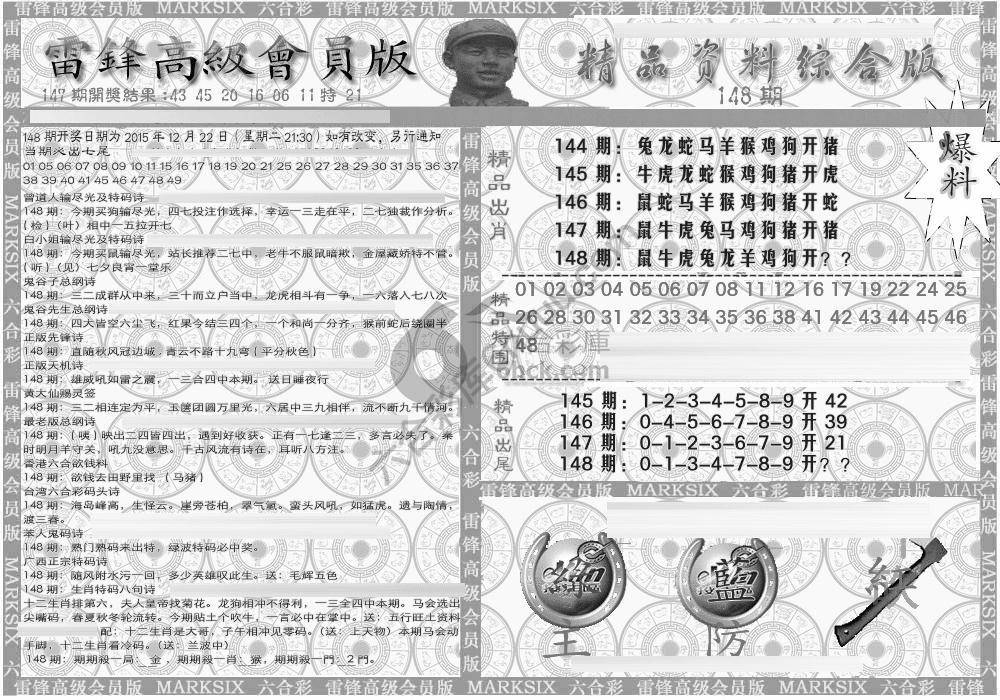 雷锋高级会员版 MARKSIX 六合彩 雷锋高级会员版 MARKSIX 六合彩 雷锋高级会员版 MARKSIX 六合彩 雷锋高级会员版
雷鋒高級會員版
147期開獎結果:43 45 20 16 06 11特 21
精品资料综合版
148期
148 期开奖日期为 2015 年 12 月 22 日（星期二 21:30）如有改变，另行通知
01 05 06 07 08 09 10 11 15 16 17 18 19 20 21 25 26 27 28 29 30 31 35 36 37
38 39 40 41 45 46 47 48 49
曾道人输尽光及特码诗
148 期：今期买狗输尽光，四七投注作选择，幸运一三走在平，二七独裁作分析。
{ 检 }（叶）相中一五拉开七
白小姐输尽光及特码诗
148 期：今期买鼠输尽光，站长推荐二七中，老牛不服鼠暗欺，金屋藏娇特不管。
{ 听 }（见）七夕良宵一堂乐
鬼谷子总纲诗
148 期：三二成群从中来，三十而立户当中，龙虎相斗有一争，一六落入七八次
鬼谷先生总纲诗
148 期：四大皆空六尘飞，红果今结三四个，一个和尚一分齐，猴前蛇后绕圈半
正版先锋诗
148 期：直随秋风冠边城，青云不路十九弯 { 平分秋色 }
正版天机诗
148 期：雄威吼如雷之震，一三合四中本期。送日睡夜行
黄大仙赐灵签
148 期：三二相连定为平，玉箧团圆万里光，六居中三九相伴，流不断九千情河。
最老版总纲诗
148 期：{ 咦 } 映出二四皆四出，遇到好收获。正有一七逢二三，多言必失了。秦
时明月羊守关，吼九没意思。千古风流有诗在，耳听八方注。
香港六合欲钱料
148 期：欲钱去田野里找 { 马猪 }
台湾六合彩码头诗
148 期：海岛峰高，生怪云。崖旁苍柏，翠气氤。蛮头风吼，如猛虎。遗与陶情，
渡三春。
笨人鬼码诗
148 期：熟门熟码来出特，绿波特码必中奖。
广西正宗特码诗
148 期：随风附水污一回，多少英雄叹此生。送：毛辉五色
148 期：生肖特码八句诗
十二生肖排第六，夫人皇帝找菊花。龙狗相冲不得利，一三全四中本期。马会选出
尖嘴码，春夏秋冬轮流转。今期贴土个吹牛，一言必中在掌中。送：五行旺土资料
配：十二生肖是大哥，子午相冲见零码。（送：上天物）本期马会动
手脚，十二生肖看冷码。（送：兰波中）
148 期：期期殺一局：金，期期殺一肖：猴，期期殺一門：2 門。
精品出肖
144 期：兔龙蛇马羊猴鸡狗开猪
145 期：牛虎龙蛇猴鸡狗猪开虎
146 期：鼠蛇马羊猴鸡狗猪开蛇
147 期：鼠牛虎兔马鸡狗猪开猪
148 期：鼠牛虎兔龙羊鸡狗开？？
爆料
精品特围
01 02 03 04 05 06 07 08 11 12 16 17 19 22 24 25
26 28 30 31 32 33 34 35 36 38 41 42 43 44 45 46
48
精品出尾
145 期：1-2-3-4-5-8-9 开 42
146 期：0-4-5-6-7-8-9 开 39
147 期：0-1-2-3-6-7-9 开 21
148 期：0-1-3-4-7-8-9 开？？
雷锋高级会员版 MARKSIX 六合彩 雷锋高级会员版 MARKSIX
主
防
雷锋高级会员版 MARKSIX 六合彩 雷锋高级会员版 MARKSIX 六合彩 雷锋高级会员版 MARKSIX 六合彩 雷锋高级会员版